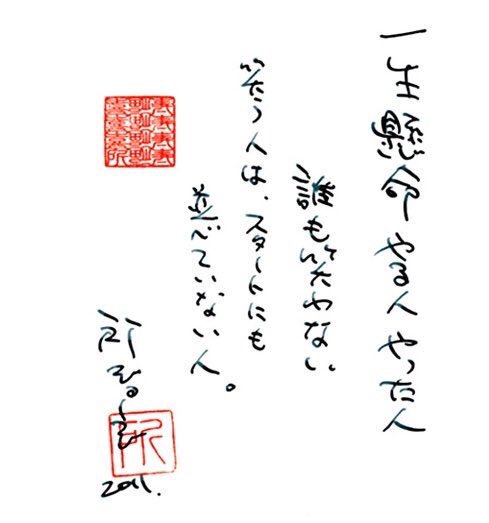 一生懸命やる人やった人
誰も笑わない
笑う人は、スタートにも
並べていない人。
2011.